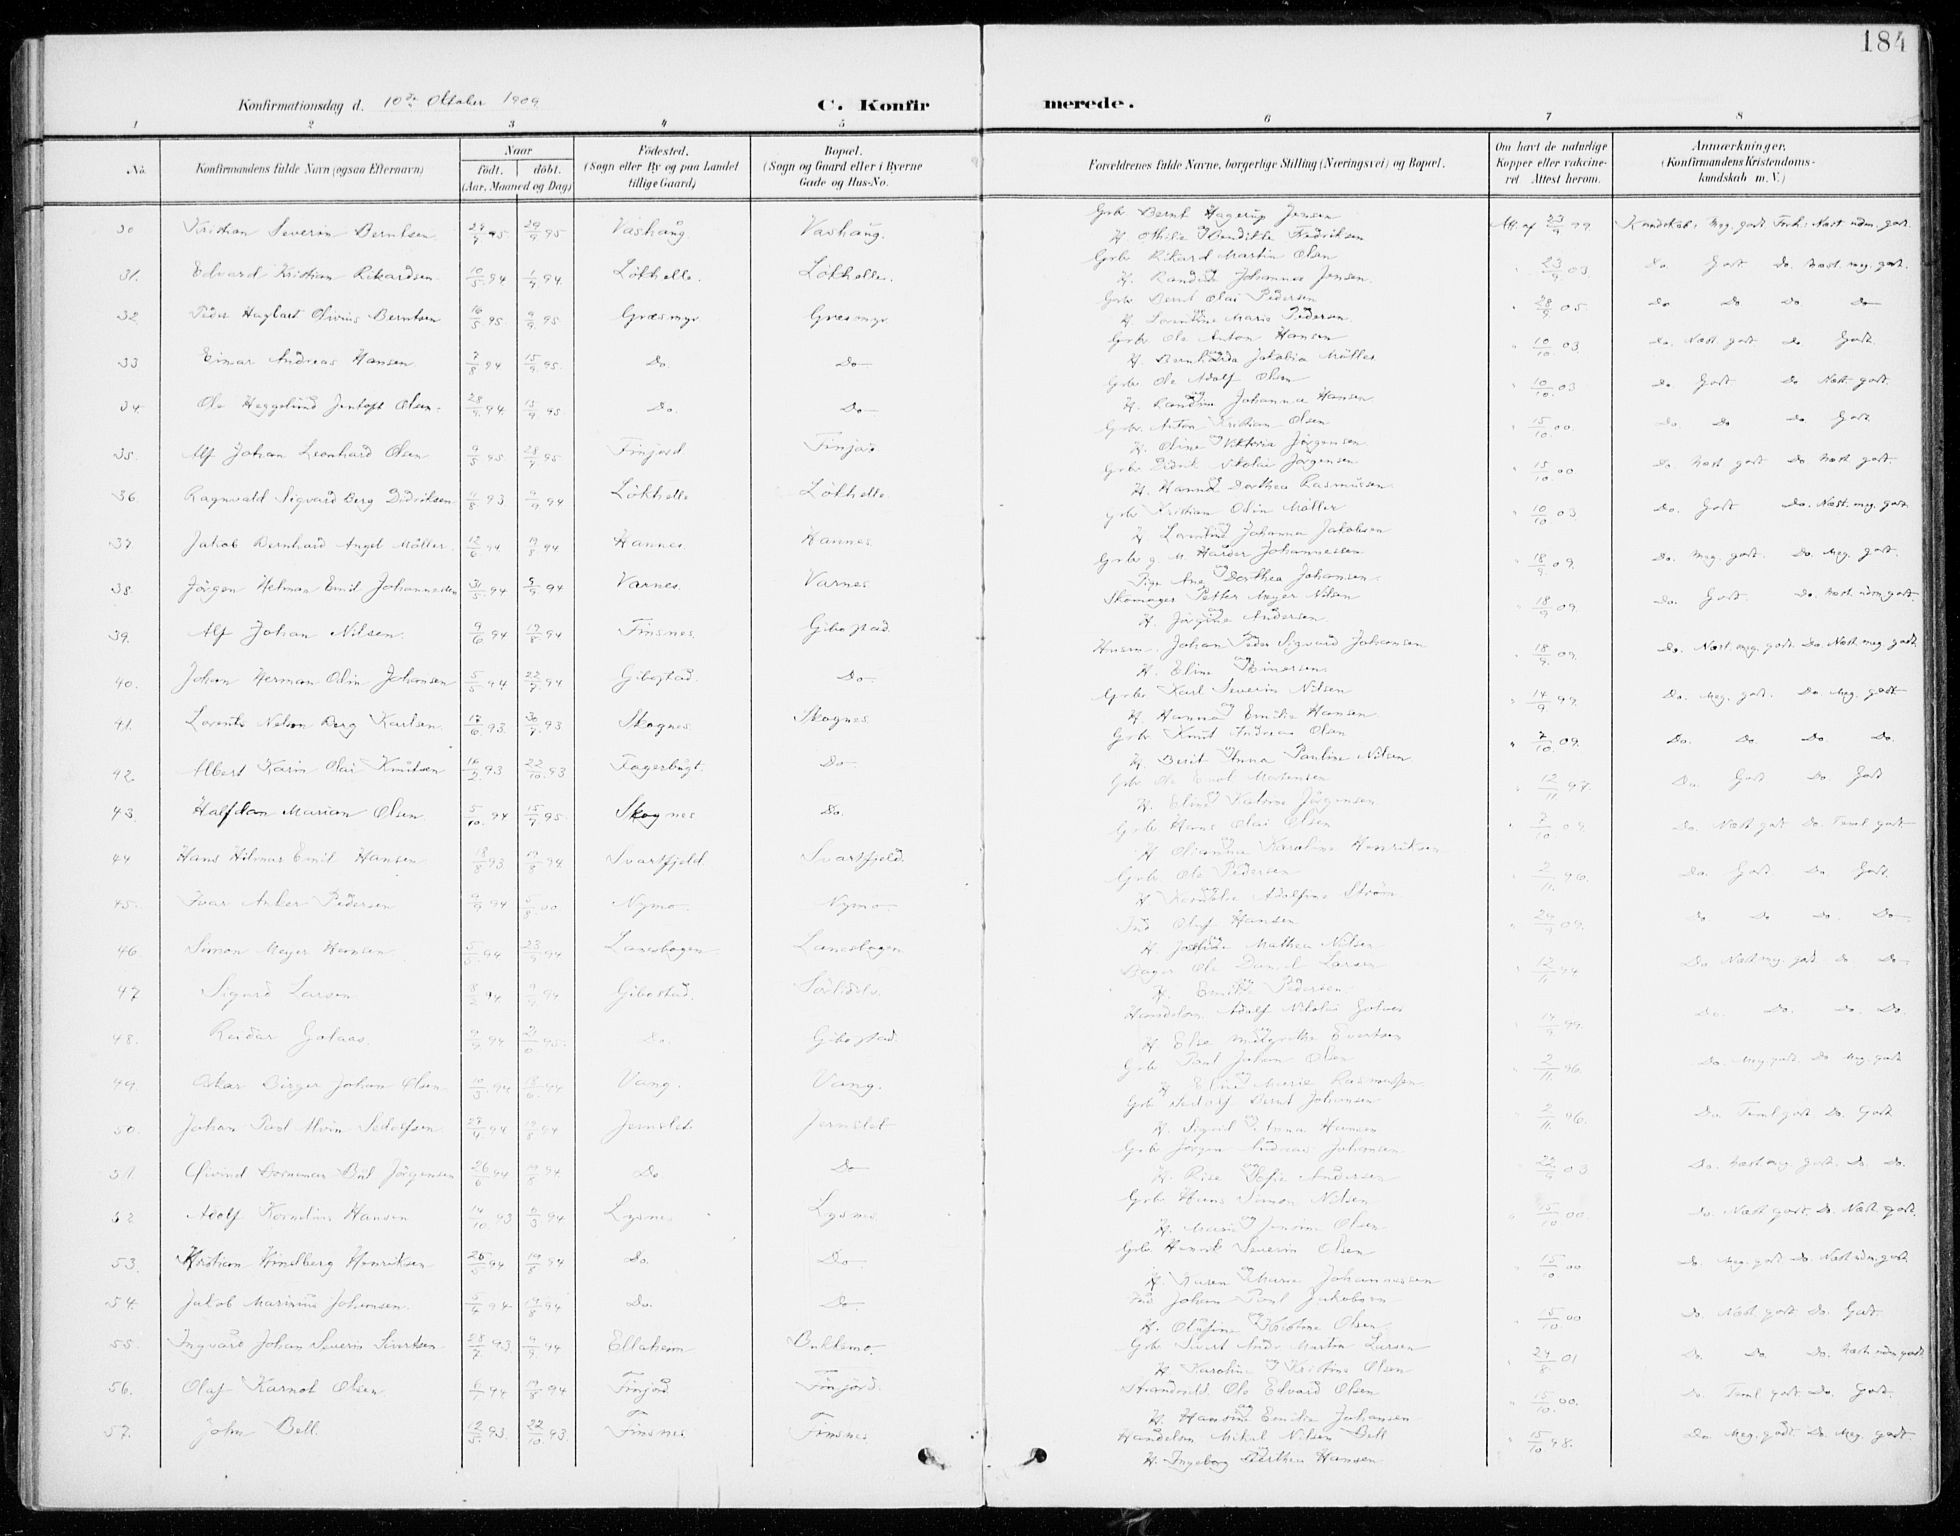 184
Konfirmationsdag d. 10de Oktober 1909
C. Konfirmerede.
1 2 3 4 5 6 7 8
No.
Konfirmandens fulde Navn (ogsaa Efternavn)
Naar
født. døbt.
(Aar, Maaned og Dag)
Fødested.
(Sogn eller By og paa Landet
tillige Gaard)
Bopæl.
(Sogn og Gaard eller i Byerne
Gade og Hus-No.
Forældrenes fulde Navne, borgerlige Stilling (Næringsvei) og Bopæl.
Om havt de naturlige
Kopper eller vaccine-
ret. Attest herom.
Anmærkninger.
(Konfirmandens Kristendoms-
kundskab m. V.)
30 Kristian Severin Berntsen 95 29/9 95 Vashaug. Vashaug. Gbr Bernt Hagerup Jensen
H. Othilie Bendikte Fredriksen
31. Edvard Kristian Rikardsen 10/5 94 1/7 94. Lökhelle. Lökhelle. Gbr Rikard Martin Olsen 23/9 03 Do. Godt Do. Næst meg. godt.
H. Randine Johanna Jensen
32. Peder Hagbart Olivius Berntsen 16/5 95. 9/9 95 Græsmyr Græsmyr Gbr Bernt Olai Pedersen 28/9 05 Do Do Do. Do
H. Lorentine Marie Pedersen
33 Einar Andreas Hansen 7/8 94 15/9 95. Do. Do Gbr Ole Anton Hansen 10/10 03. Do. Næst godt Do Godt.
H. Bernharda Jakobia Müller
34. Ole Heggelund Jentoft Olsen. 94 15/9 95 Do. Do Gbr Ole Adolf Olsen 10/10 03 Do Godt Do Næst godt.
H. Randine Johanna Hansen
35. Alf Johan Leonhard Olsen 9/5 95 28/7 95 Finjord Finjord Gbr. Anton Kristian Olsen 15/10 00. Do Do Do Godt
H. Oline Viktoria Jörgensen
36 Ragnvald Sigvard Berg Didriksen 93 9/9 94 Lökhelle Lökhelle Gbr Didrik Nikolai Jörgensen 15/10 00 Do Næst godt Do Næst godt.
H. Hanna Dorthea Rasmussen
37. Jakob Bernhard Angel Möller. 12/6 94 19/8 94 Hannes Hannes. Gbr Kristian Odin Möller 10/10 03. Do. Godt Do. Næst meg. godt
H. Lorentine Johanna Jakobsen
38 Jörgen Helmar Emil Johannesen 31/5 94 94 Varnes. Varnes. Gbr g. M. Harder Johannessen 18/9 09. Do. Meg. godt. Do. Meg. godt.
Pige Ane Dorthea Johansen.
39. Alf Johan Nilsen. 9/6 94 19/8 94 Finsnes. Gibostad. Skomager Petter Meyer Nilsen 18/9 09. Do. Godt.
H. Jörgine Andersen
40. Johan Herman Odin Johansen 5/5 94 22/7 94 Gibostad. Do. Husm. Johan Peder Sigvard Johansen 18/9 09. Do. Næst meg. godt. Do. Næst meg. godt
H. Eline Einersen
41. Lorents Nelson Berg Karlsen. 17/6 93. 30/7 93 Skognes. Skognes. Gbr Karl Severin Nilsen 14/9 99. Do. Meg. godt. Do. Meg. godt
H. Hanna Emilie Hansen
42. Albert Karin Olai Knutsen 16/2 93 22/10 93 Fagerbugt. Do Gbr Knut Andreas Olsen 7/10 09. Do. Do. Do. Do.
H. Berit Anna Pauline Nilsen
43. Halfdan Marian Olsen 5/10. 94 15/7 95. Skognes Do. Gbr Ole Emil Mortensen 12/11 97. Do. Godt Do. Godt
H. Eline Katrine Jörgensen
44 Hans Hilmar Emil Hansen. 18/8 93 19/8 94. Svartfjeld. Svartfjeld. Gbr Hans Olai Olsen 7/10 09. Do. Næst godt Do. Teml. godt
H. Olianna Karoline Henriksen
45. Ivar Anker Pedersen 94 00 Nymo. Nymo. Gbr Ole Pedersen 2/11. 96. Do. Godt. Do Godt.
H. Kornelie Adolfine Ström
46. Simon Meyer Hansen 94 94 Lanesbogen. Lanesbogen Ind Oluf Hansen 09. Do Do Do. Do
H. Mathea Nilsen
47 Sigurd Larsen 8/2 94 94 Gibostad. Bager Ole Daniel Larsen 12/11 94 Do Næst meg. godt Do. Do
H. Emilie Pedersen.
48. Reidar Golaas 94 95. Do. Gibostad. Handelsm. Adolf Nikolai Golaas 99. Do. Do. Do. Do.
H. Else Margrethe Evertsen
49. Oskar Birger Johan Olsen 94 94 Vang. Vang. Gbr Paul Johan Olsen 2/11 96. Do. Meg. godt Do Meg. godt
H. Eline Marie Rasmussen
50. Johan Paul Alvin Sedolfsen. 94 94 Jernslet. Jernslet Gbr Sedolf Bernt Johansen 2/11. 96. Do. Teml. godt Do. Godt
H. Sigrid Anna Hansen
51. Øivind Jörgensen 26/6 94 19/8 94. Do Do Gbr Jörgen Andreas Johansen 22/9 03 Do. Næst meg. godt. Do. Do.
H. Sofie Andersen
52 Adolf Kornelius Hansen 14/10 93 94 Lysnes. Lysnes. Gbr Hans Simon Nilsen 15/10 00. Do. Næst godt. Do. Næst. godt.
H. Marie Jensine Olsen
53. Kristian Hindberg Henriksen 26/5 94 19/8 94 Do. Do Gbr Henrik Severin Olsen 15/10 00 Do. Meg. godt Do.
H. Karen Marie Johannessen
54. Jakob Marinius Johansen. 94 19/8 94 Do. Do. Ind Johan Paul Jakobsen 15/10 00 Do. Næst godt Do. Godt
H. Olufine Kristine Olsen
55. Ingvard Johan Severin Sivertsen 28/7 93. 94 Elleheim Bukkemo. Gbr Sivert Andr. Martin Larsen 29/8 01 Do. Do. Do.
H. Karoline Kristine Olsen
56. Olaf Karnot Olsen 94 19/8 94 Finjord Finjord. Strandsidd. Ole Edvard Olsen 15/10. 00. Do. Teml. godt Do. Godt.
H. Hansine Emilie Johansen
57. John Bell. 12/5. 93. 22/10 93. Finsnes Finsnes. Handelsm. Mikal Nilsen Bell 15/10 98. Do. Meg. godt. Do. Meg. godt.
H. Ingeborg Berthea Hansen